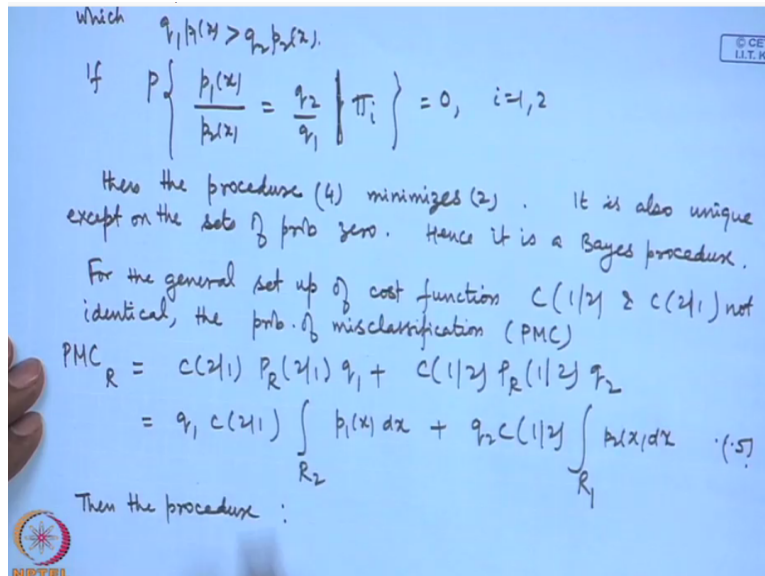 which q₁p₁(x) > q₂p₂(x).
© CET
I.I.T. K
If P{ p₁(x)/p₂(x) = q₂/q₁ | πᵢ } = 0, i=1,2
then the procedure (4) minimizes (2). It is also unique
except on the sets of prob zero. Hence it is a Bayes procedure.
For the general set up of cost function C(1|2) & C(2|1) not
identical, the prob. of misclassification (PMC)
PMC_R = C(2|1) P_R(2|1) q₁ + C(1|2) P_R(1|2) q₂
= q₁ C(2|1) ∫_{R₂} p₁(x) dx + q₂ C(1|2) ∫_{R₁} p₂(x) dx ..(5)
Then the procedure :
NPTEL